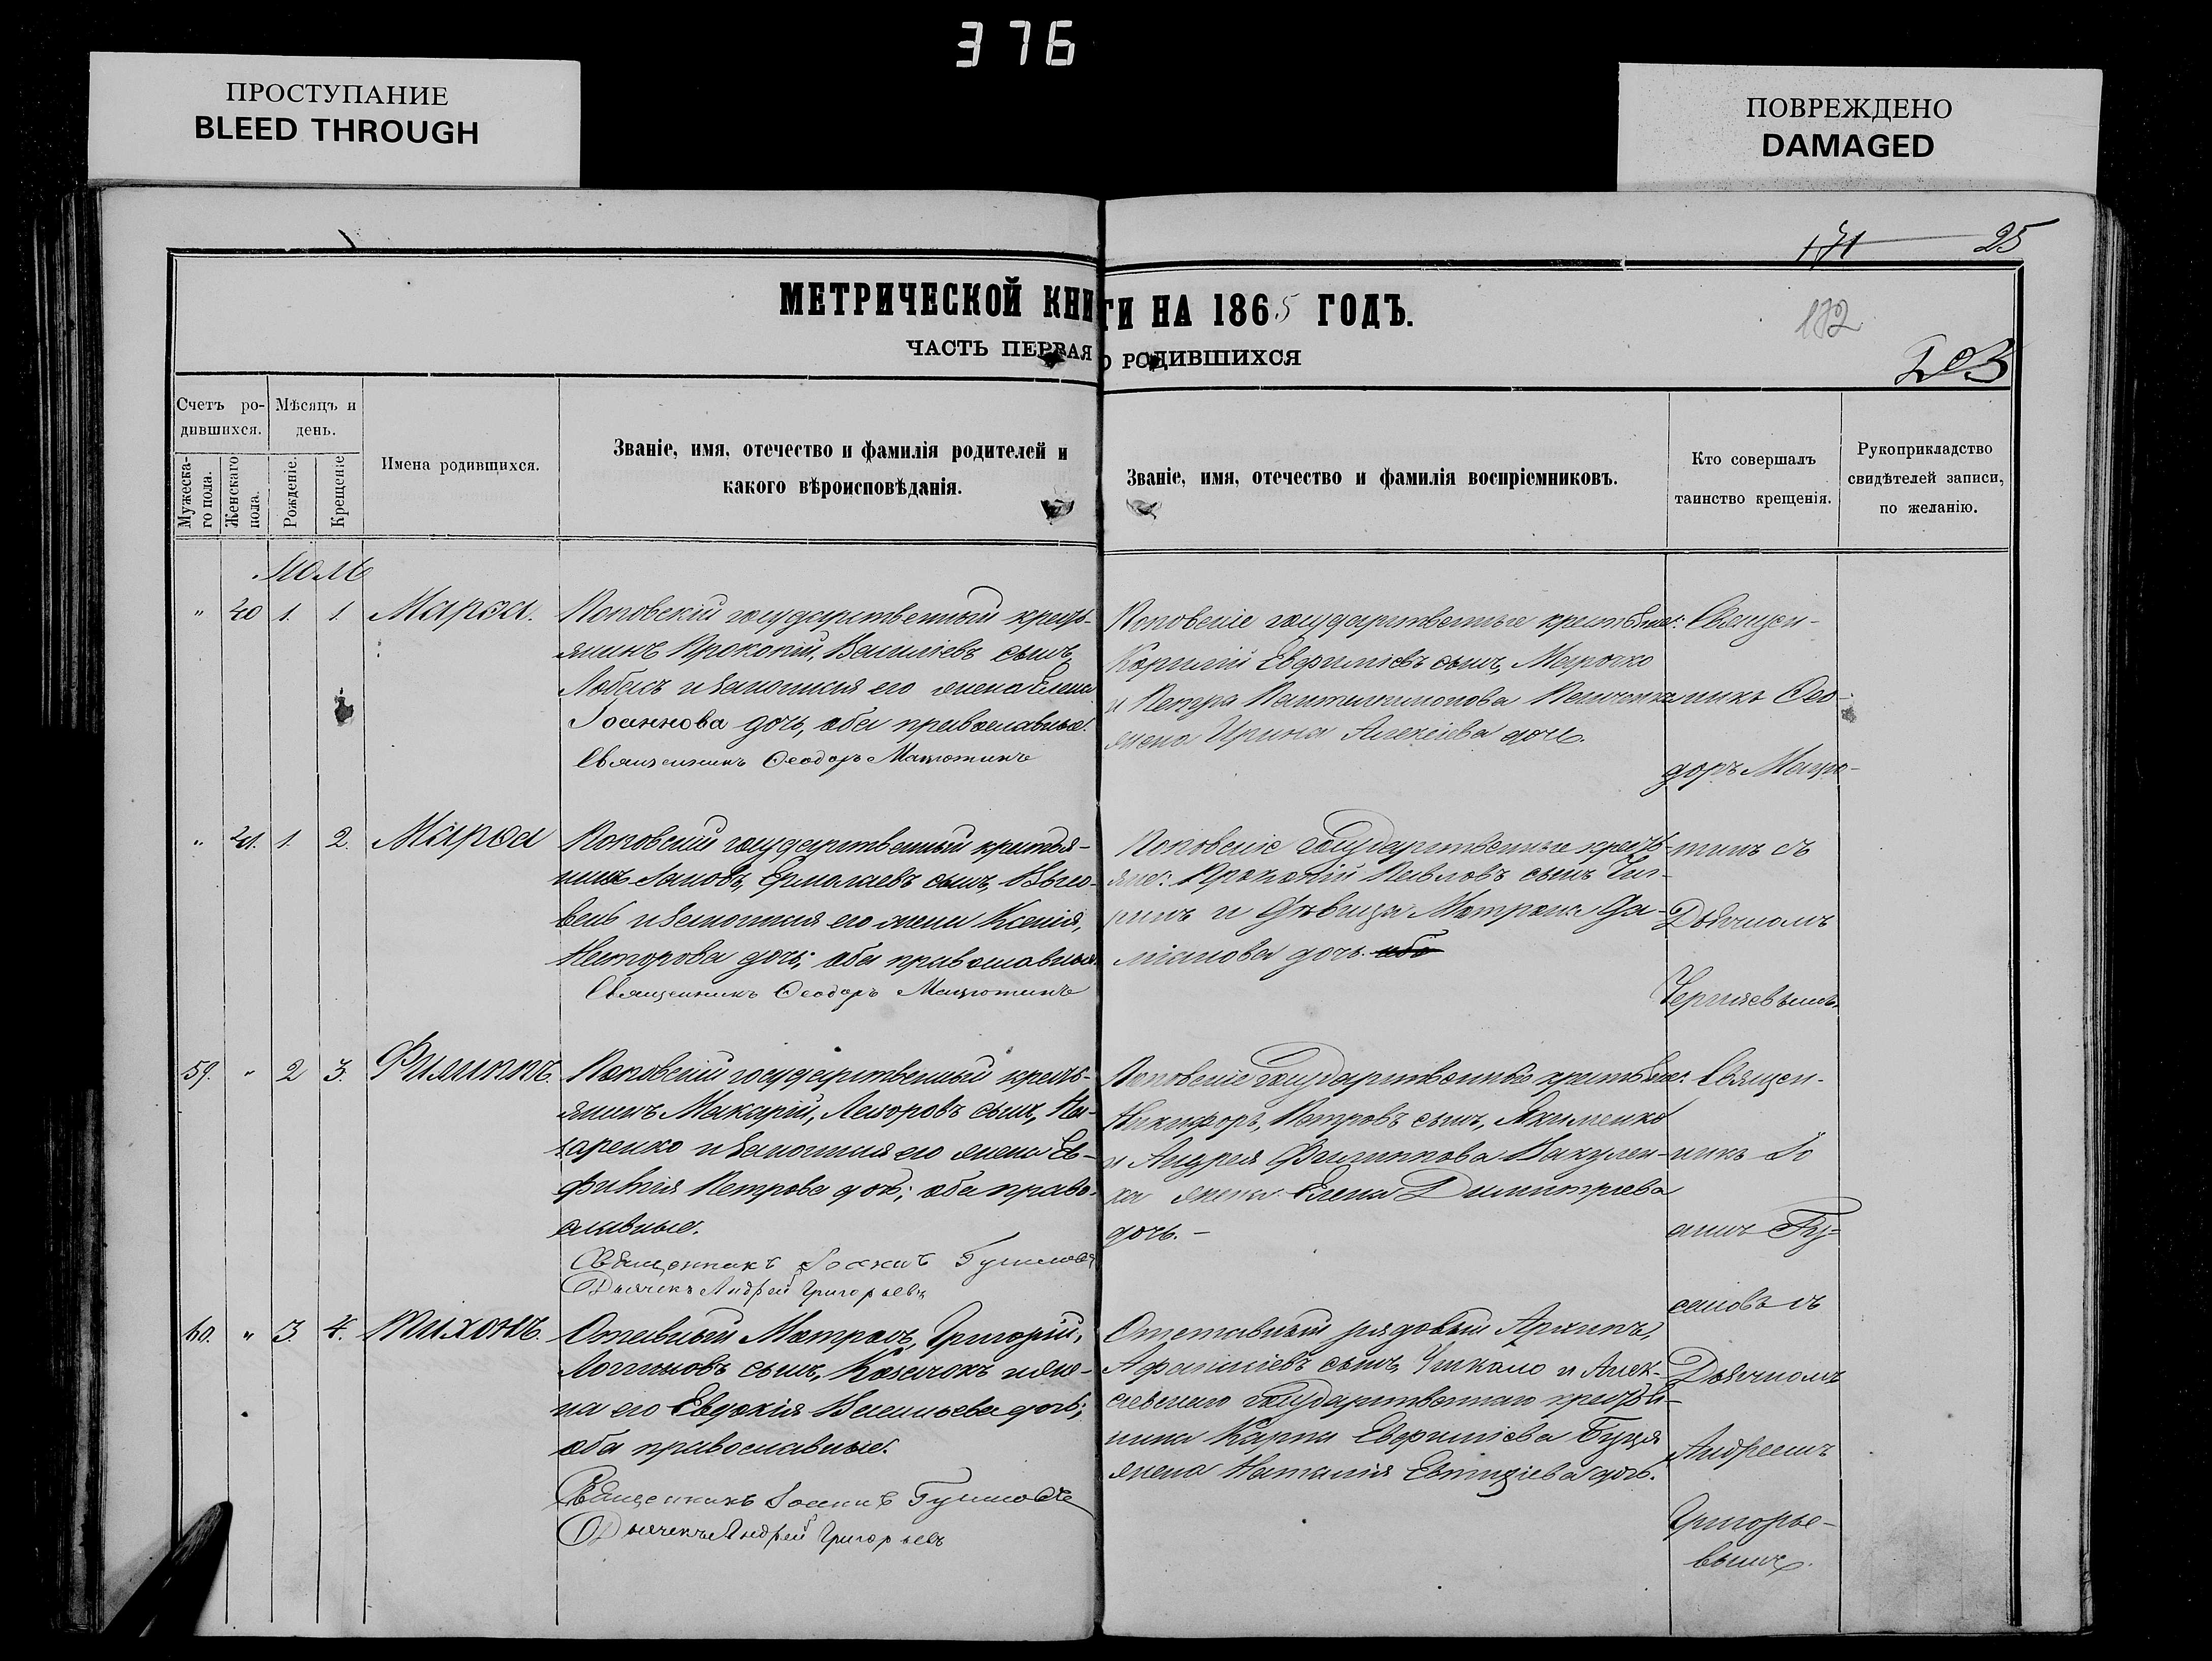 376
ПРОСТУПАНИЕ
BLEED THROUGH
ПОВРЕЖДЕНО
DAMAGED
171 25
МЕТРИЧЕСКОЙ КНИГИ НА 1865 ГОДЪ.
172
ЧАСТЬ ПЕРВАЯ О РОДИВШИХСЯ
203
Счетъ ро-
дившихся.
Мужеска-
го пола.
Женскаго
пола.
Мѣсяцъ и
день.
Рожденіе.
Крещеніе
Имена родившихся.
Званіе, имя, отечество и фамилія родителей и
какого вѣроисповѣданія.
Званіе, имя, отечество и фамилія воспріемниковъ.
Кто совершалъ
таинство крещенія.
Рукоприкладство
свидѣтелей записи,
по желанію.
" 40 1. 1. Марѳа.
Поповскій государственный кресть-
янинъ Прокопій, Василіевъ сынъ,
и законная его жена Елена
Іоаннова дочь, оба православные.
Священникъ Ѳеодоръ
Поповскіе государственные крестьяне:
Корнилій Евфиміевъ сынъ,
и Петра Пантилимонова
жена Ирина Алексіева дочь.
Священ-
никъ Ѳео-
доръ
" 41. 1. 2. Марѳа
Поповскій государственный крестья-
нинъ Ермолаевъ сынъ,
и законная его жена Ксенія,
Несторова дочь; оба православные.
Священникъ Ѳеодоръ
Поповскіе государственные кресть-
яне: Прокопій Павловъ сынъ
и дѣвица Матрона Да-
міанова дочь.
съ
Дьячкомъ
Черняевымъ.
59. " 2 3. Филиппъ.
Поповскій государственный кресть-
янинъ Макарій, сынъ, На-
заренко и законная его жена Ев-
фимія Петрова дочь; оба право-
славные.
Священникъ Іоаннъ
Дьячекъ Андрей Григорьевъ
Поповскіе государственные крестьяне:
Никифоръ, Петровъ сынъ, Якименко
и Андрея Филиппова Вакулен-
ка жена Елена Димитріева
дочь. -
Священ-
никъ Іо
аннъ
съ
60. " 3. 4. Тихонъ.
Григорій,
Логиновъ сынъ, Козачокъ и же-
на его Евдокія Васильева дочь;
оба православные.
Священникъ Іоаннъ
Дьячекъ Андрей Григорьевъ
Отставный рядовый Архипъ,
Афанасіевъ сынъ, и Алек-
сѣевскаго государственнаго крестья-
нина Карпа Евфиміева
жена Наталія дочь.
Дьячкомъ
Андреемъ
Григорье-
вымъ.